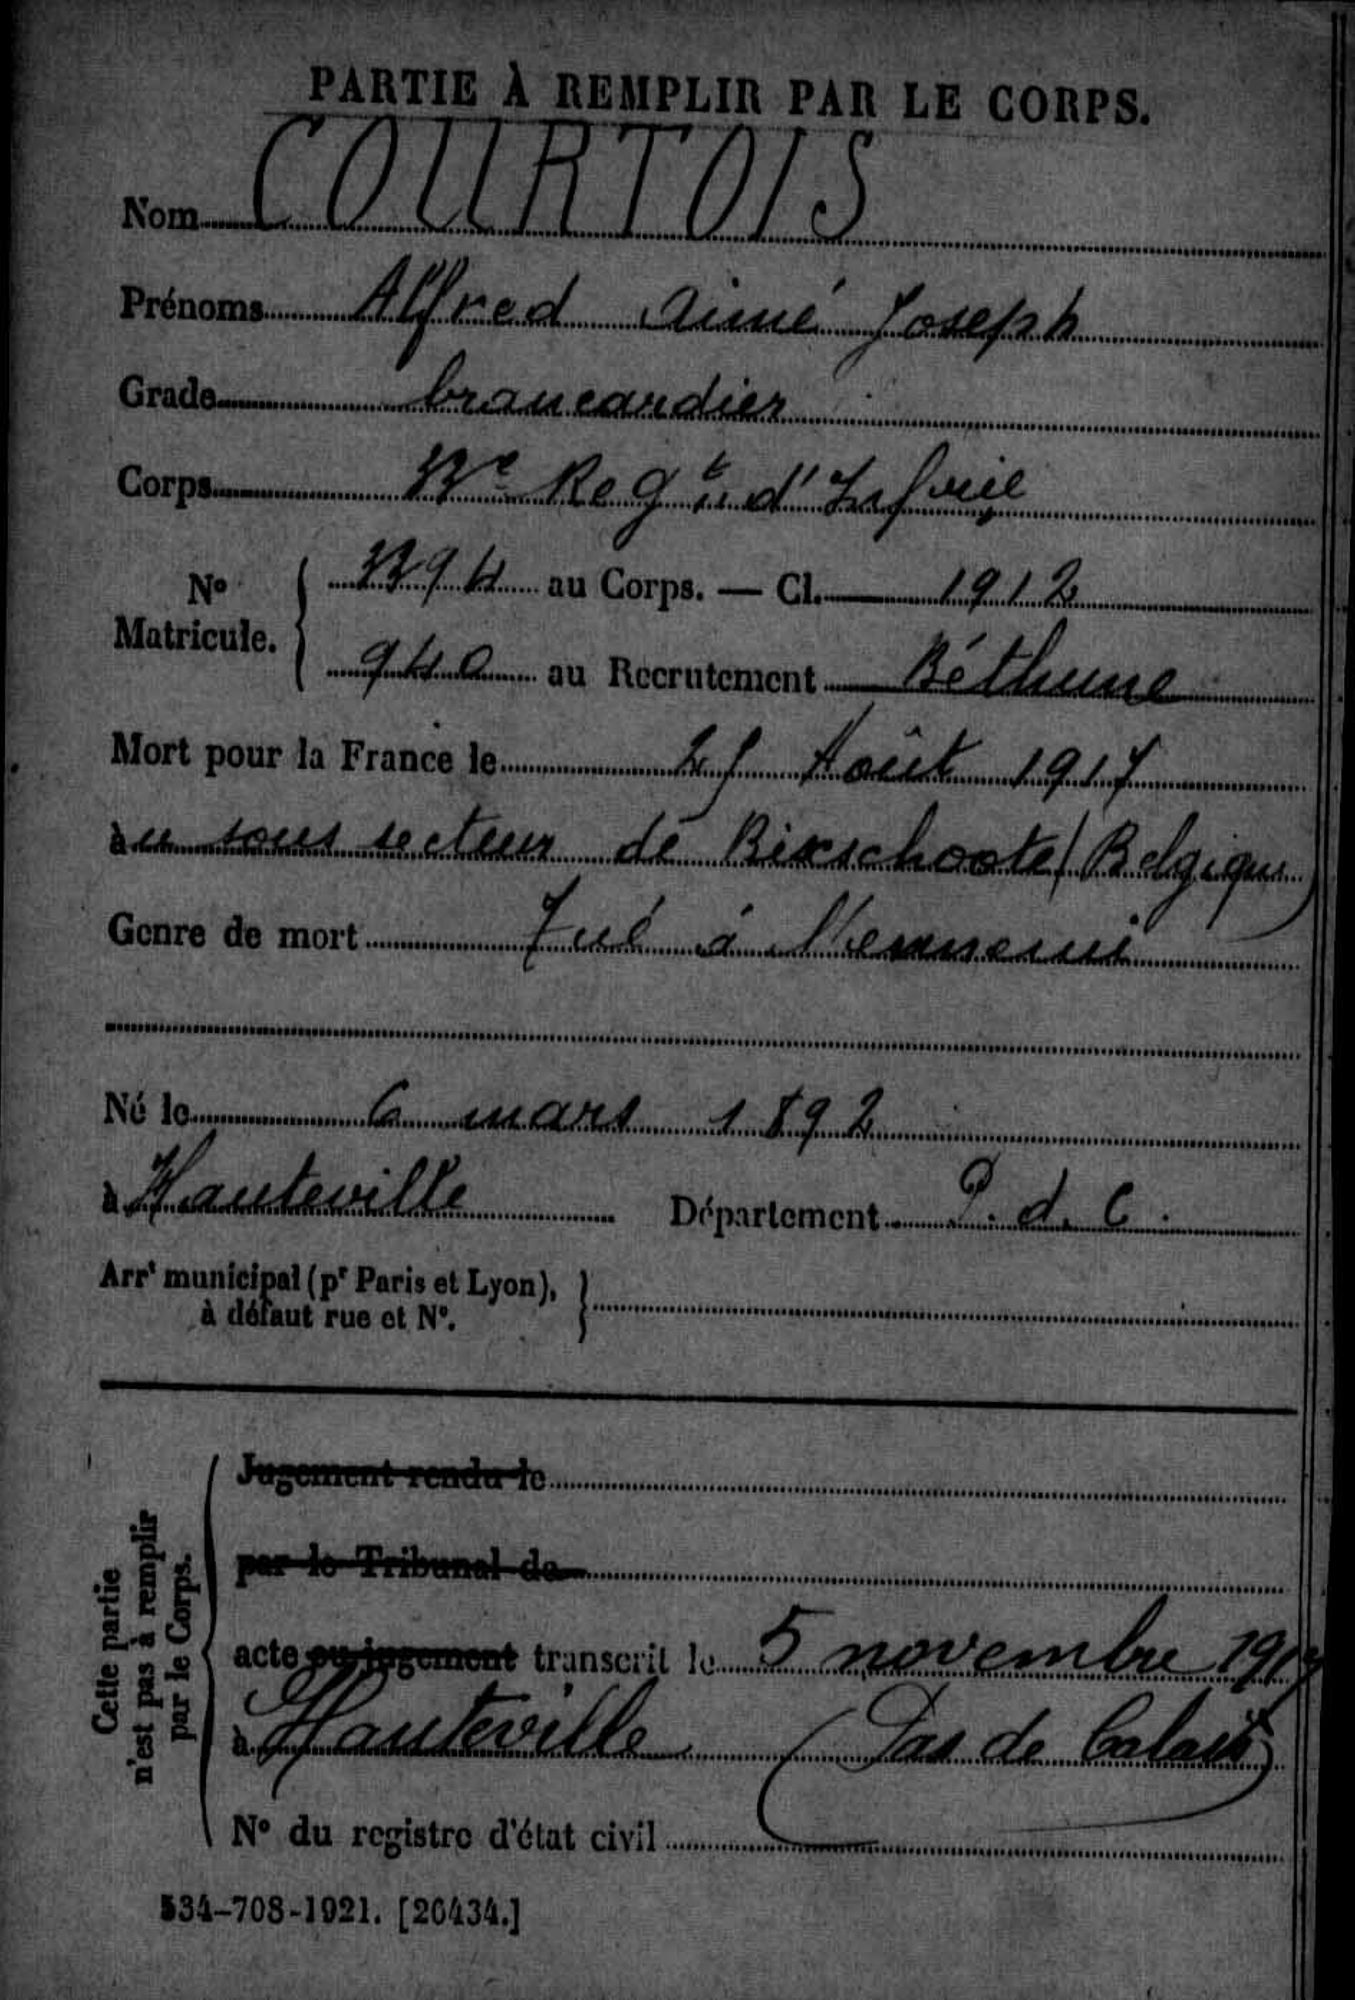 PARTIE À REMPLIR PAR LE CORPS.
Nom COURTOIS
Prénoms Alfred Aimé Joseph
Grade brancardier
Corps Regt d'Infrie
No Matricule. au Corps. — Cl. 1912
940 au Recrutement Béthune
Mort pour la France le Août 1917
au sous secteur de Bixschoote (Belgique)
Genre de mort Tué à l'ennemi
Né le 6 mars 1892
à Hauteville Département P. d. C.
Arrt municipal (pr Paris et Lyon),
à défaut rue et No.
Cette partie
n'est pas à remplir
par le Corps.
Jugement rendu le
par le Tribunal de
acte ou jugement transcrit le 5 novembre 1917
à Hauteville (Pas de Calais)
No du registre d'état civil
534-708-1921. [26434.]